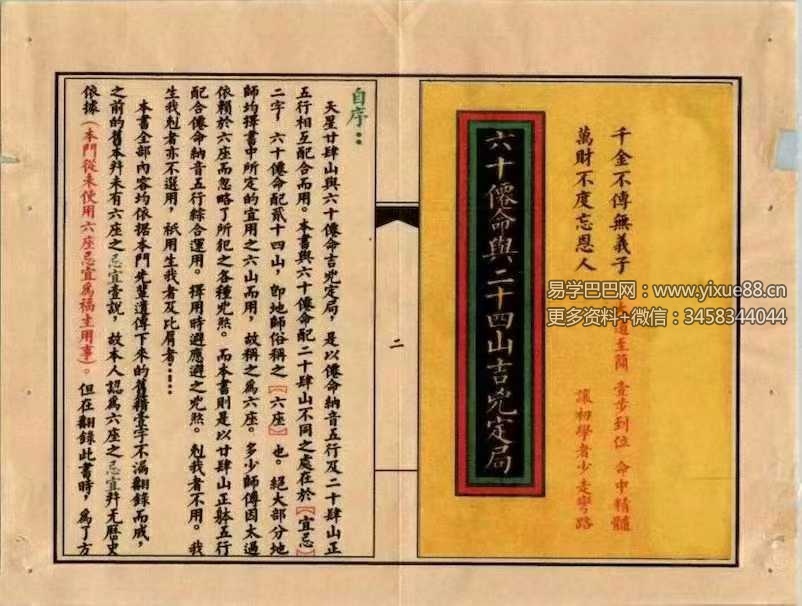 千金不傳無義子
萬財不度忘恩人
六十僊命與二十四山吉兇定局
易学巴巴网：www.yixue88.cn
更多资料+微信：3458344044
道至簡 壹步到位 命中精髓
讓初學者少走彎路
二
自序：
天星廿肆山與六十僊命吉兇定局，是以僊命納音五行及二十肆山正
五行相互配合而用。本書與六十僊命配二十肆山不同之處在於【宜忌】
二字—六十僊命配貳十四山，即地師俗稱之【六座】也。絕大部分地
師均擇書中所定的宜用之六山而用，故稱之為六座。多少師傅因太過
依賴於六座而忽略了所犯之各種兇煞。而本書則是以廿肆山正躰五行
配合僊命納音五行綜合運用。擇用時避應避之兇煞。剋我者不用。我
生我剋者亦不選用，祇用生我者及比肩者……
本書全部內容均依据本門先輩遺傳下來的舊籍壹字不漏翻錄而成，
之前的舊本幷未有六座之忌宜壹說，故本人認為六座之忌宜幷无歷史
依據（本門從未使用六座忌宜為福主用事）。但在翻錄此書時，為了方